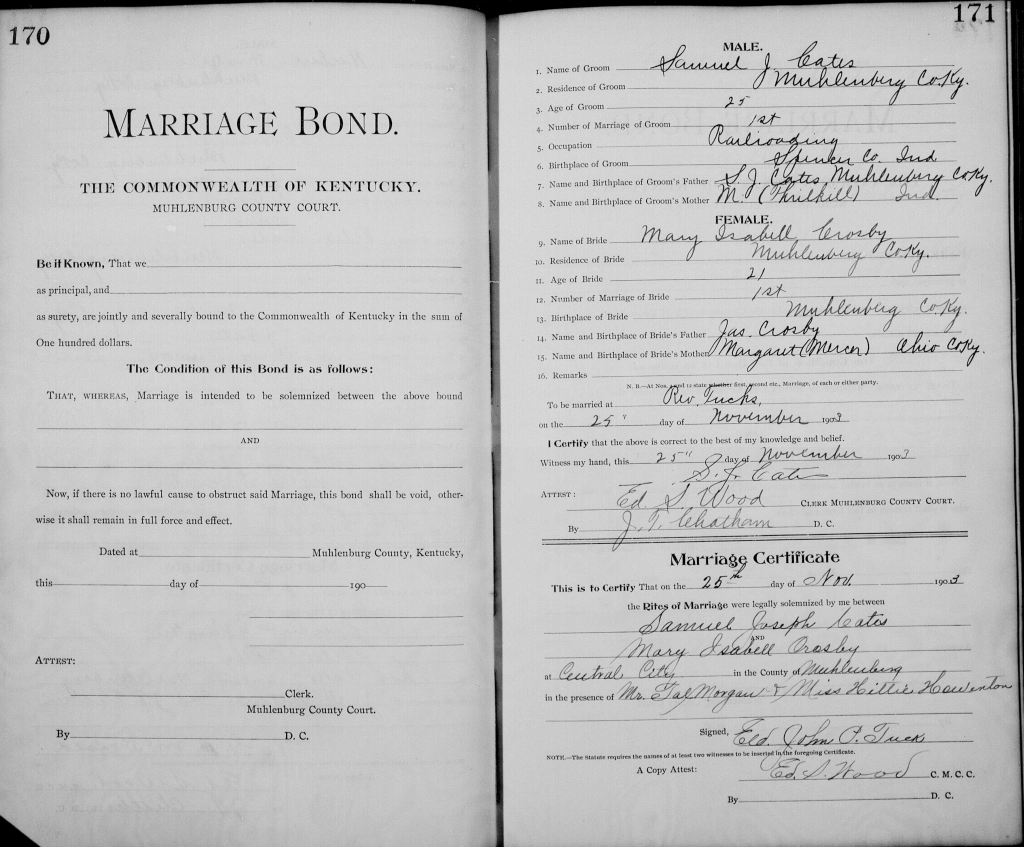 170
MARRIAGE BOND.
THE COMMONWEALTH OF KENTUCKY.
MUHLENBURG COUNTY COURT.
Be it Known, That we
as principal, and
as surety, are jointly and severally bound to the Commonwealth of Kentucky in the sum of
One hundred dollars.
The Condition of this Bond is as follows:
THAT, WHEREAS, Marriage is intended to be solemnized between the above bound
AND
Now, if there is no lawful cause to obstruct said Marriage, this bond shall be void, other-
wise it shall remain in full force and effect.
Dated at Muhlenburg County, Kentucky,
this day of 190
ATTEST:
Clerk.
Muhlenburg County Court.
By D. C.
171
MALE.
1. Name of Groom Samuel J. Cates
2. Residence of Groom Muhlenberg Co. Ky.
3. Age of Groom 25
4. Number of Marriage of Groom 1st
5. Occupation Railroading
6. Birthplace of Groom Spencer Co. Ind
7. Name and Birthplace of Groom's Father S. J. Cates Muhlenberg Co Ky.
8. Name and Birthplace of Groom's Mother M. (Thrilkill) Ind.
FEMALE.
9. Name of Bride Mary Isabell Crosby
10. Residence of Bride Muhlenberg Co. Ky.
11. Age of Bride 21
12. Number of Marriage of Bride 1st
13. Birthplace of Bride Muhlenberg Co. Ky.
14. Name and Birthplace of Bride's Father Jas. Crosby
15. Name and Birthplace of Bride's Mother Margaret (Mercer) Ohio Co Ky.
16. Remarks
N. B.—At Nos. 4 and 12 state whether first, second etc., Marriage, of each or either party.
To be married at Rev. Tucks,
on the 25" day of November 1903
I Certify that the above is correct to the best of my knowledge and belief.
Witness my hand, this 25" day of November 1903
S. J. Cates
ATTEST: Ed. S. Wood CLERK MUHLENBURG COUNTY COURT.
By J. T. Chatham D. C.
Marriage Certificate
This is to Certify That on the 25th day of Nov. 1903
the Rites of Marriage were legally solemnized by me between
Samuel Joseph Cates
AND
Mary Isabell Crosby
at Central City in the County of Muhlenberg
in the presence of Mr. Morgan & Miss Hittie Howenton
Signed, Eld. John P. Tuck
NOTE.—The Statute requires the names of at least two witnesses to be inserted in the foregoing Certificate.
A Copy Attest: Ed. S. Wood C. M. C. C.
By D. C.